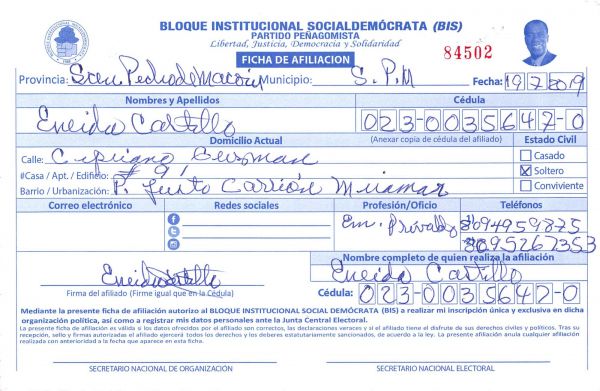 BLOQUE INSTITUCIONAL SOCIALDEMÓCRATA (BIS)
PARTIDO PEÑAGOMISTA
Libertad, Justicia, Democracia y Solidaridad
84502
FICHA DE AFILIACION
Provincia: San Pedro de Macorís Municipio: S. P. M Fecha: 19/7/2019
Nombres y Apellidos Cédula
Eneida Castillo 023-0035647-0
Domicilio Actual (Anexar copia de cédula del afiliado) Estado Civil
Calle: Cipriano Guzman Casado
#Casa / Apt. / Edificio: # 91 X Soltero
Barrio / Urbanización: P. Justo Carrión Miramar Conviviente
Correo electrónico Redes sociales Profesión/Oficio Teléfonos
Em. Privado 8094959875
8095267353
Nombre completo de quien realiza la afiliación
Eneida Castillo Eneida Castillo
Firma del afiliado (Firme igual que en la Cédula) Cédula: 023-0035647-0
Mediante la presente ficha de afiliación autorizo al BLOQUE INSTITUCIONAL SOCIAL DEMÓCRATA (BIS) a realizar mi inscripción única y exclusiva en dicha
organización política, así como a registrar mis datos personales ante la Junta Central Electoral.
La presente ficha de afiliación es válida si los datos ofrecidos por el afiliado son correctos, las declaraciones veraces y si el afiliado tiene el disfrute de sus derechos civiles y políticos. Tras su
recepción, sello y firmas autorizadas el afiliado ejercerá todos los derechos y los deberes estatutariamente sancionados, de acuerdo a la ley. La presente afiliación anula cualquier afiliación
realizada con anterioridad a la fecha que aparece en esta ficha.
SECRETARIO NACIONAL DE ORGANIZACIÓN SECRETARIO NACIONAL ELECTORAL